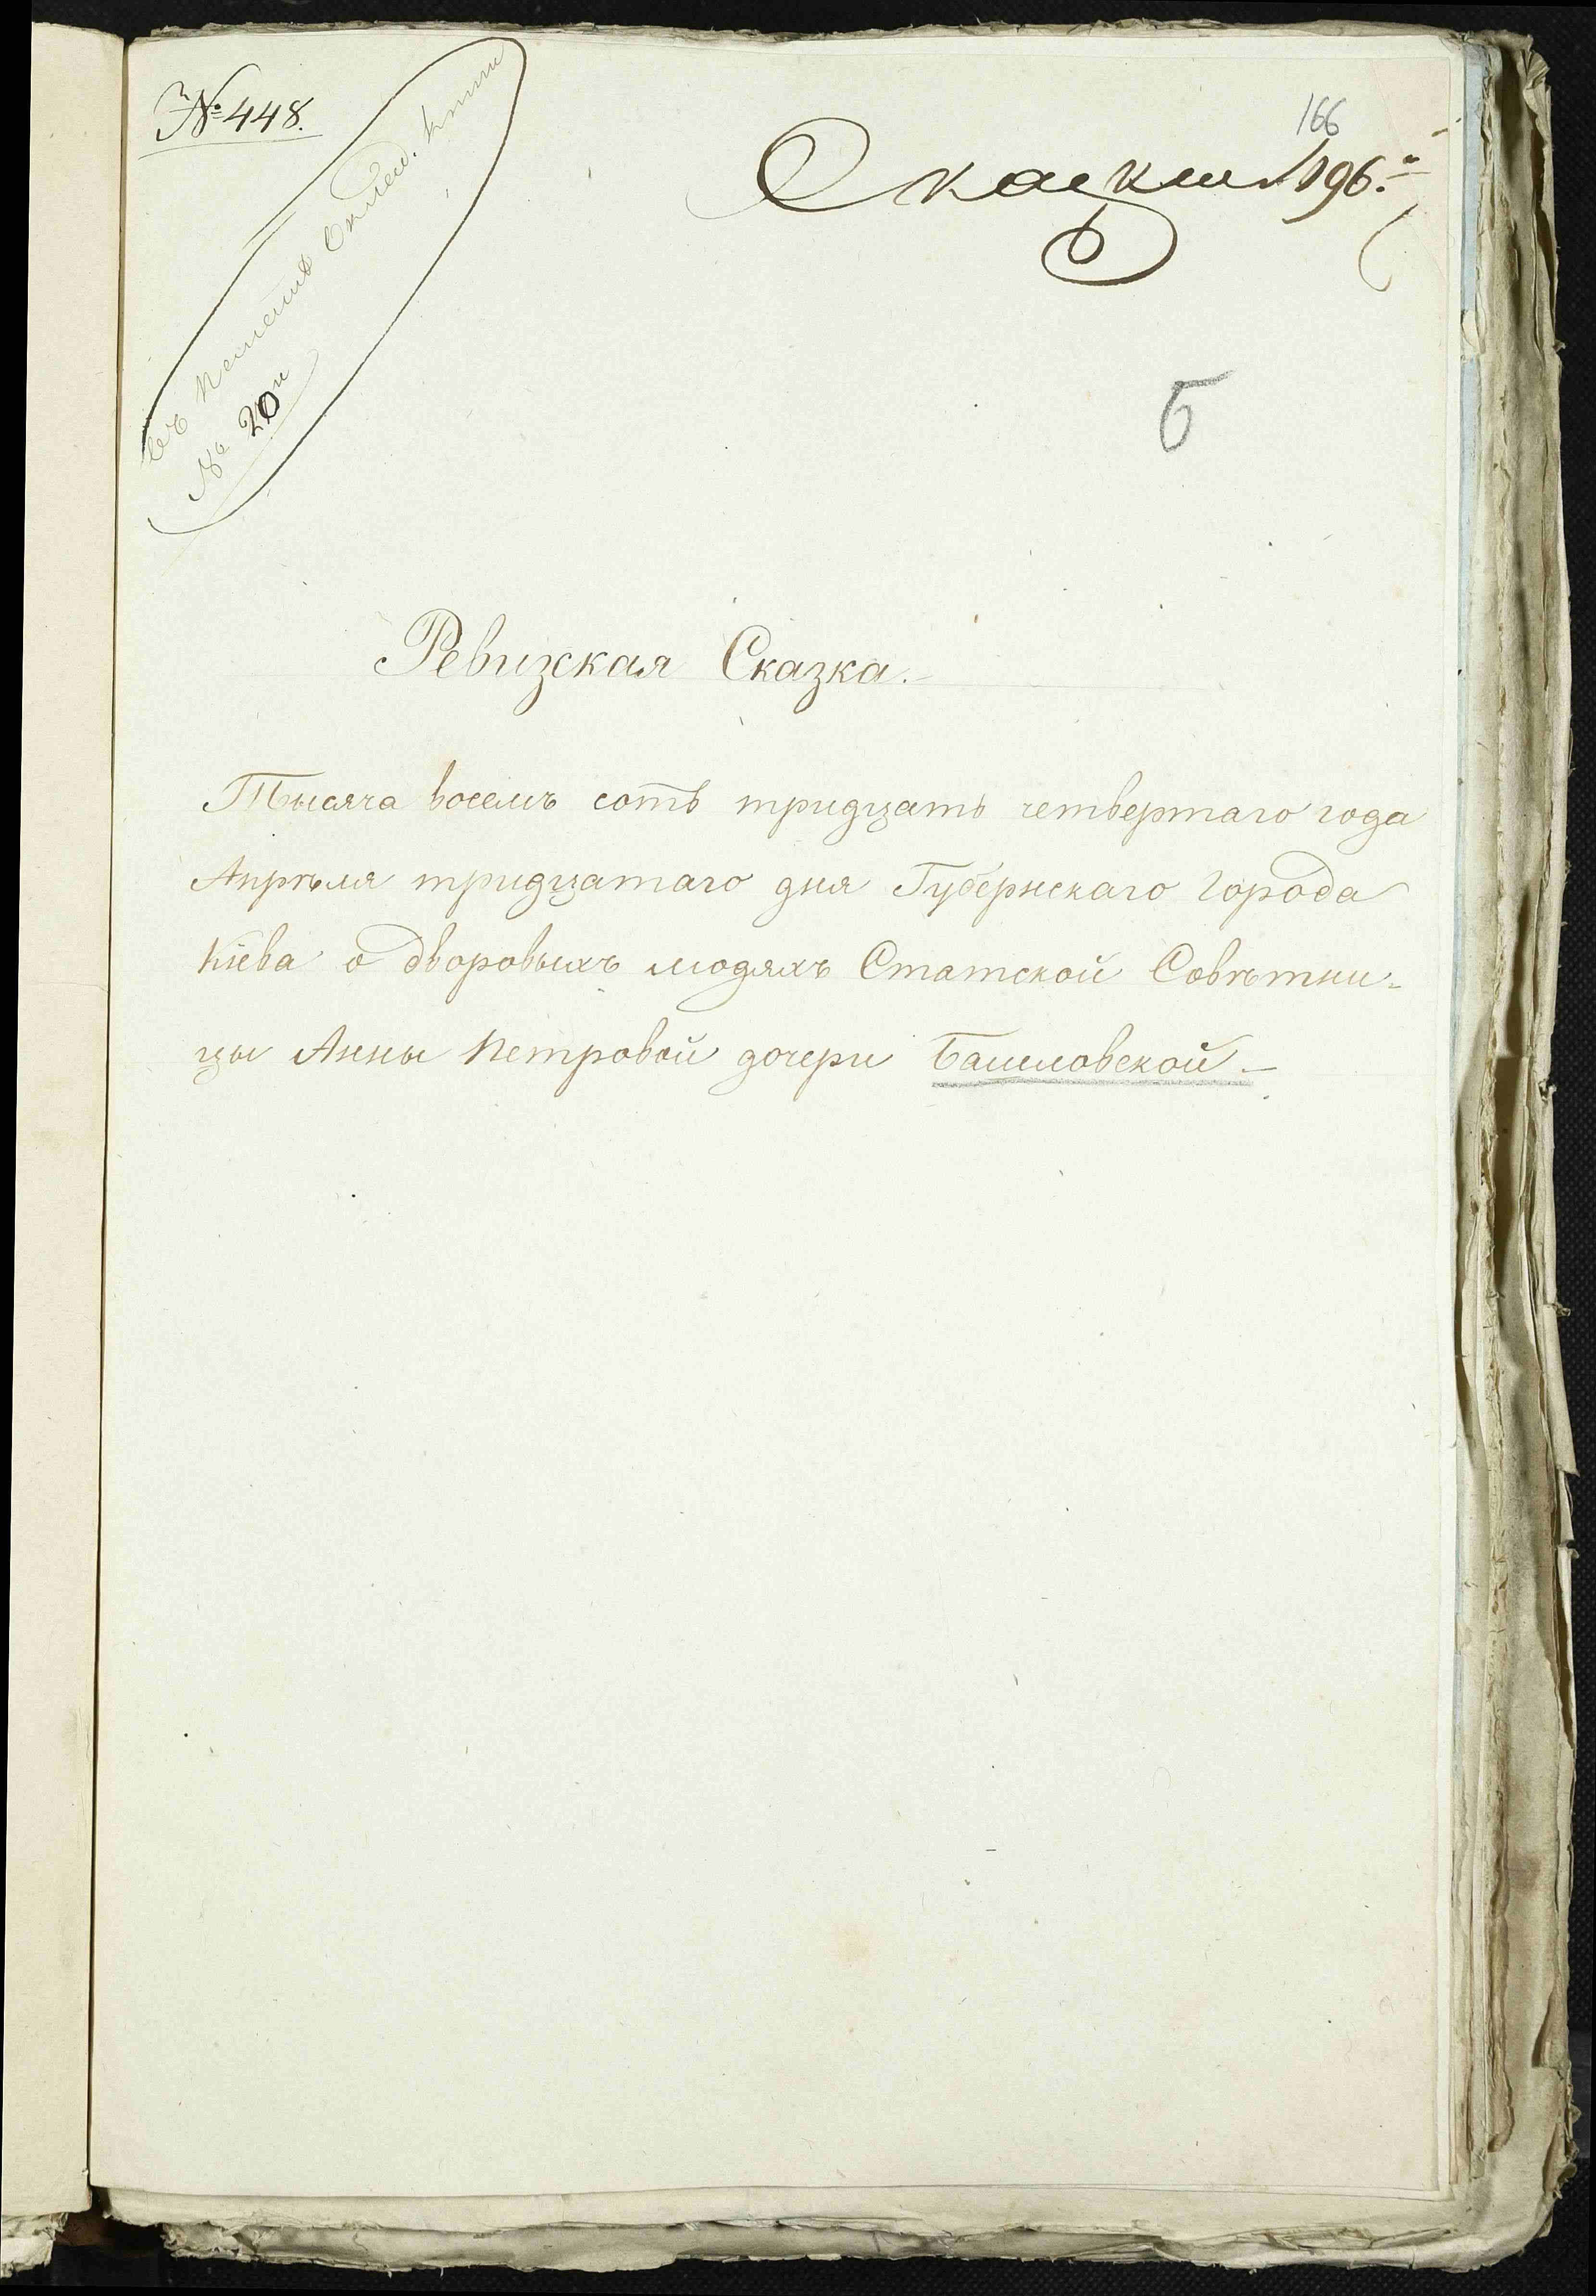 № 448.
166
196.
№ 20й
Б
Ревизская Сказка.
Тысяча восемъ сотъ тридцать четвертаго года
Апрѣля тридцатаго дня Губернскаго Города
Кіева о дворовыхъ людяхъ Статской Совѣтни=
цы Анны Петровой дочери Башловской